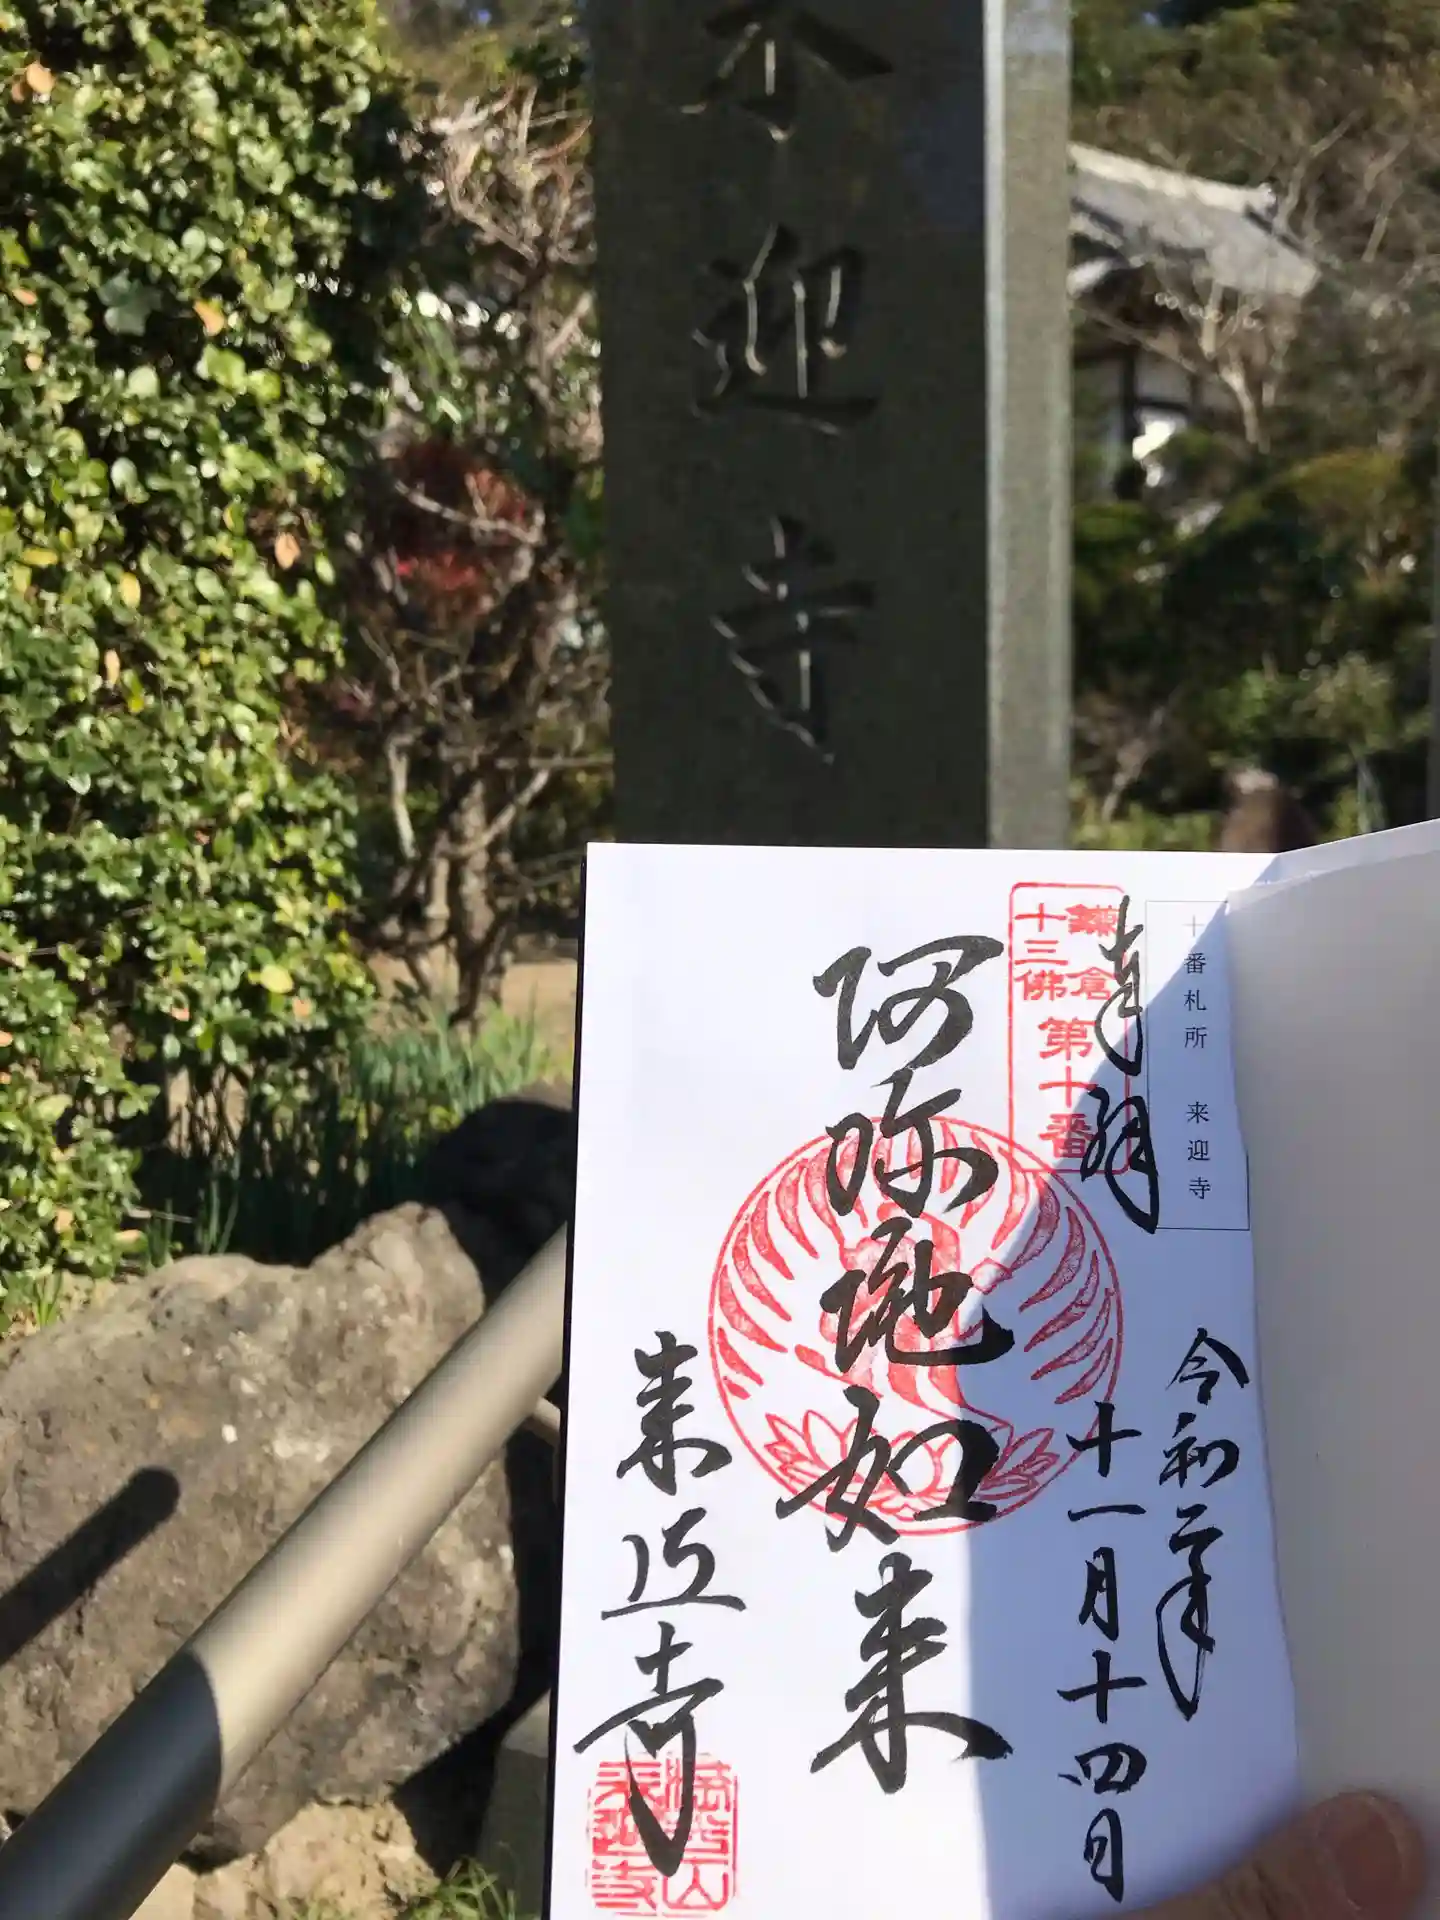 来迎寺
十番札所 来迎寺
奉拝
鎌倉
十三佛
第十番
令和二年
十一月十四日
阿弥陀如来
来迎寺